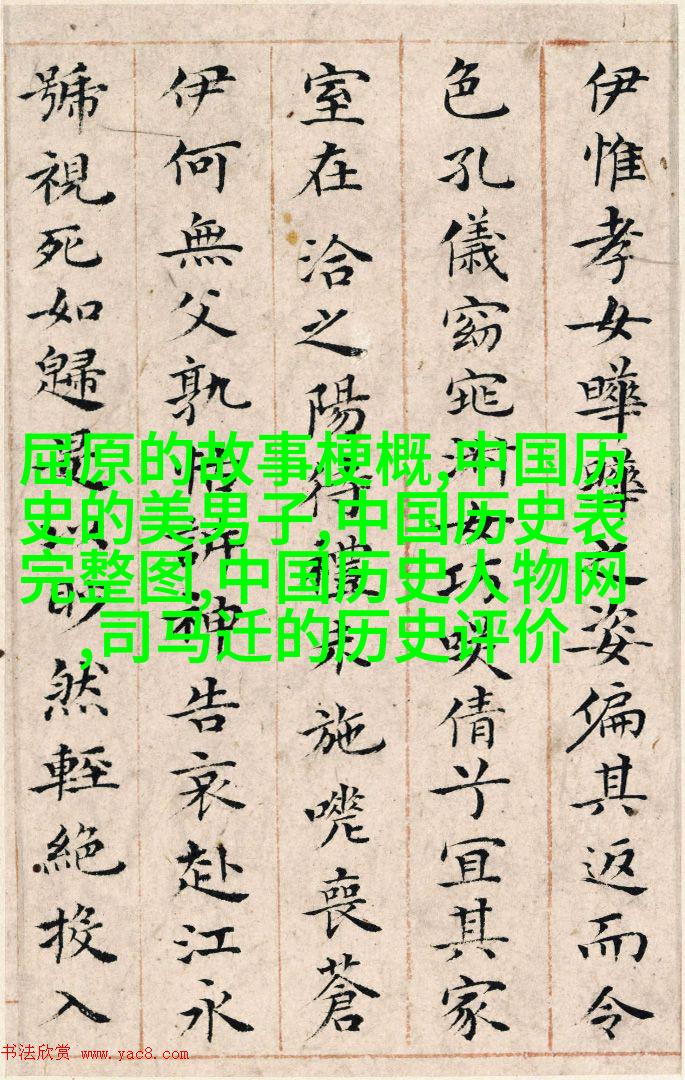 伊惟孝女曄曄之姿偏其返而令
色孔儀窈窕淑女巧咲倩兮宜其家
室在洽之陽待禮未施嗟喪蒼
伊何無父孰怙訴神告哀赴江永
號視死如歸是以眇然輕絕投入
屈原的故事梗概,中国历
史的美男子,中国历史表
完整图,中国历史人物网
,司马迁的历史评价
书法欣赏 www.yac8.com